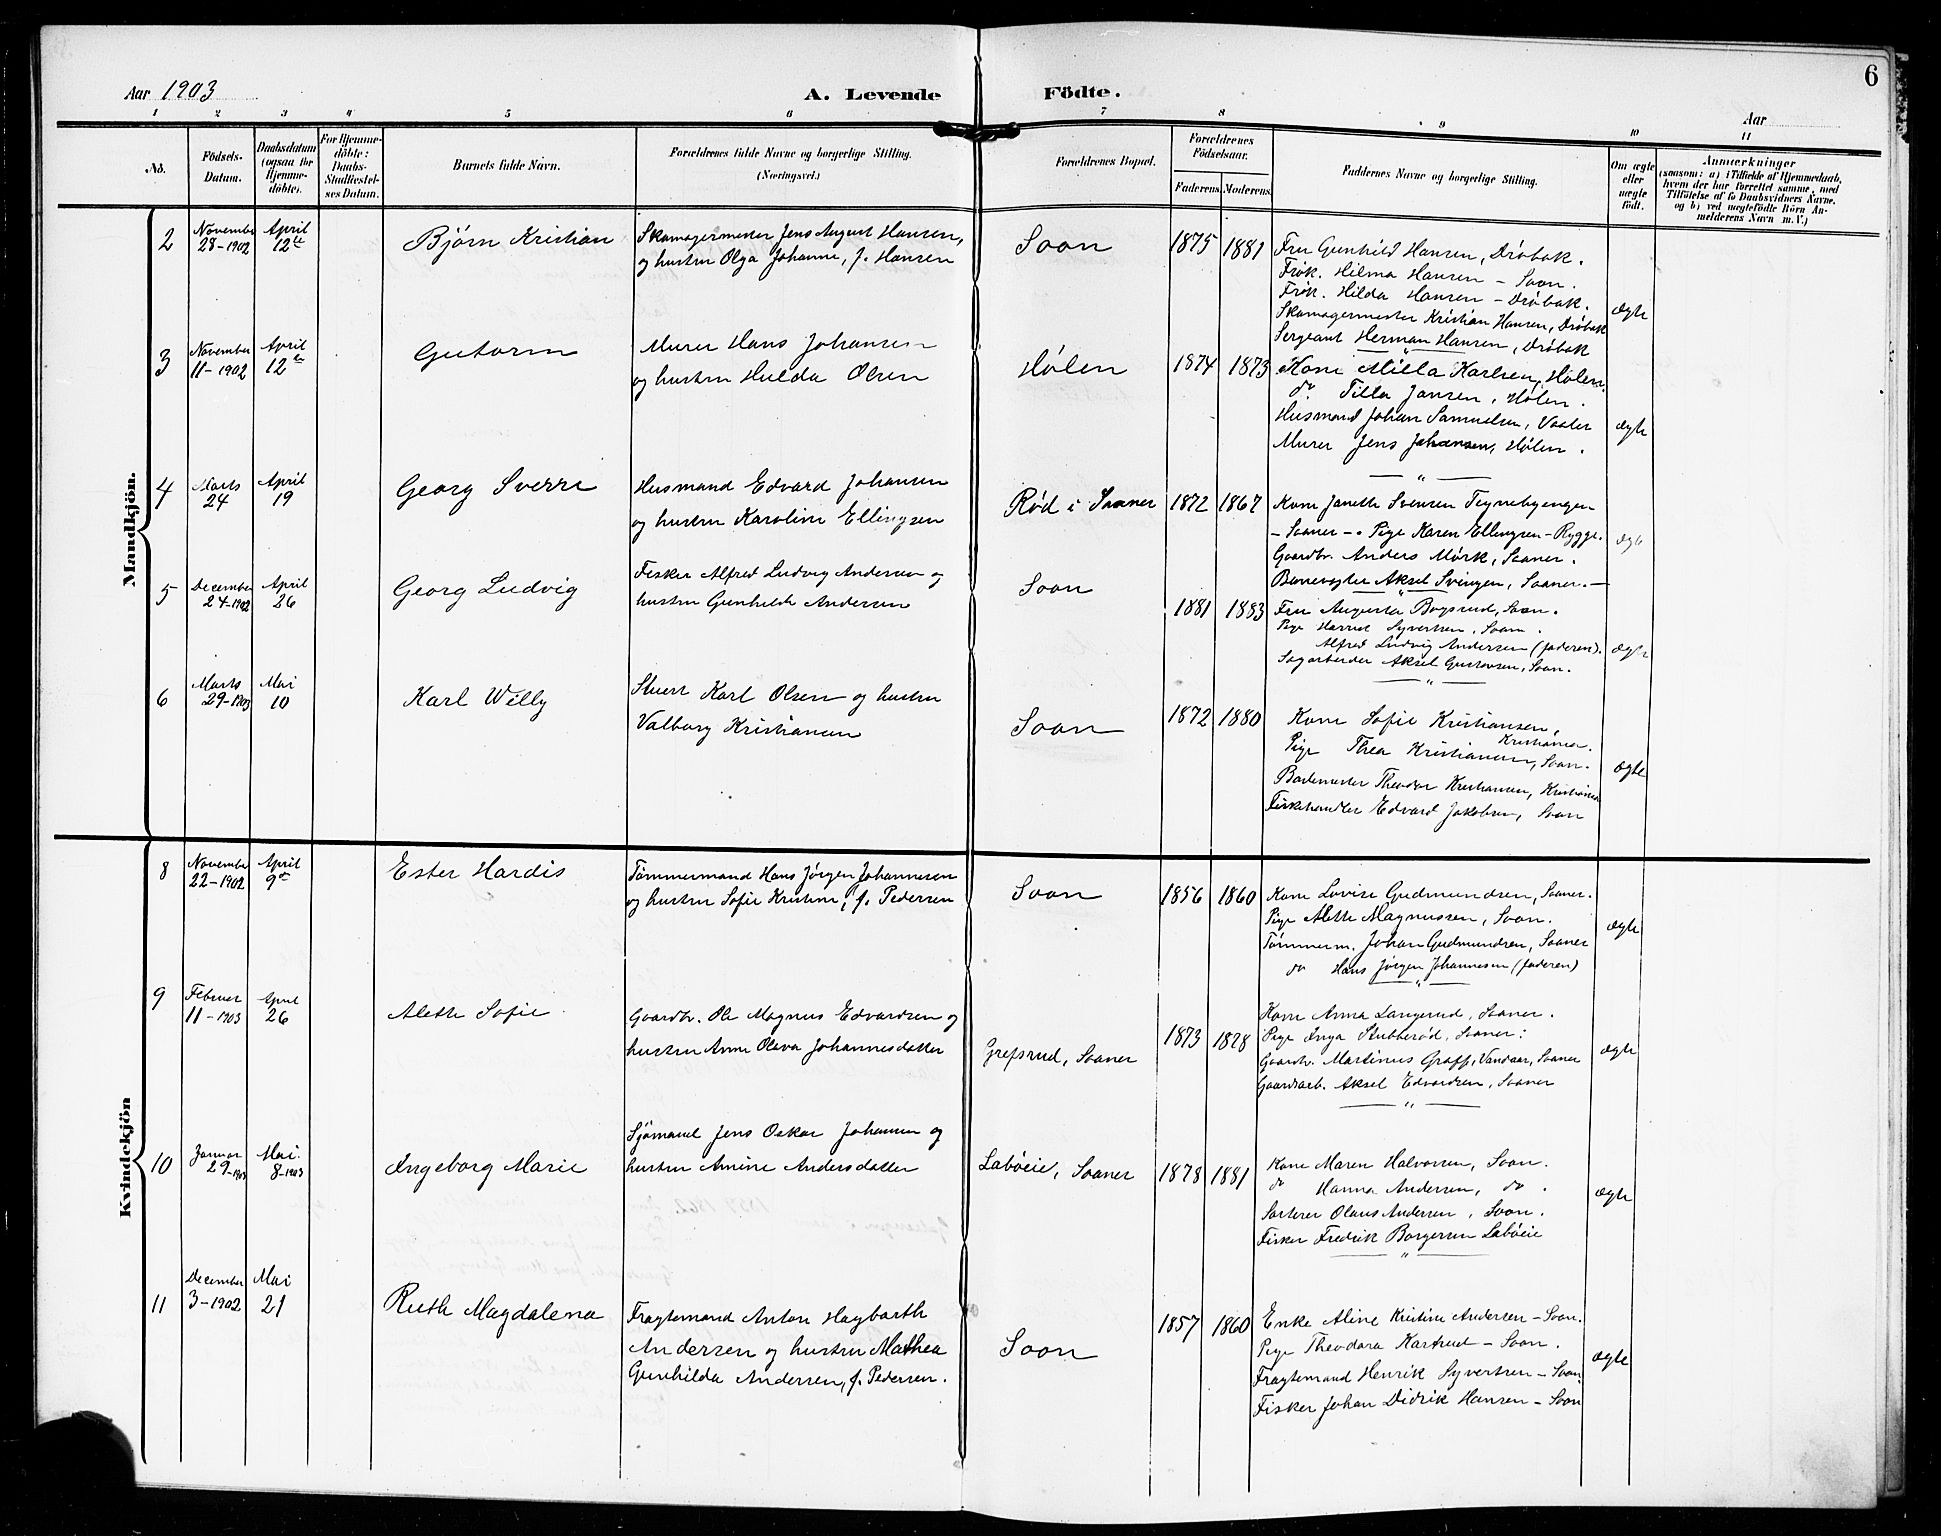 6
Aar 1903
A. Levende Födte.
Aar
1 2 3 4 5 6 7 8 9 10 11
No.
Födsels-Datum.
Daabsdatum (ogsaa for Hjemmedöbte).
For Hjemmedöbte: Daabs-Stadfæstelses Datum.
Barnets fulde Navn.
Forældrenes fulde Navne og borgerlige Stilling. (Næringsvei.)
Forældrenes Bopæl.
Forældrenes Födselsaar.
Faderens. Moderens.
Faddernes Navne og borgerlige Stilling.
Om ægte eller uægte födt.
Anmærkninger
(saasom: a) i Tilfælde af Hjemmedaab, hvem der har forrettet samme, med Tilföielse af to Daabsvidners Navne, og b) ved uægtefödte Börn Anmelderens Navn m. V.)
Mandkjön.
2
November 28-1902
April 12te
Bjørn Kristian
Skomagermester Jens August Hansen,
og hustru Olga Johanne, f. Hansen
Soon
1875 1881
Fru Gunhild Hansen, Drøbak.
Frøk. Hilma Hansen - Soon.
Frøk. Hilda Hansen - Drøbak.
Skomagermester Kristian Hansen, Drøbak
Sergeant Herman Hansen, Drøbak
ægte
3
November 11-1902
April 12te
Gutorm
Murer Hans Johansen
og hustru Hulda Olsen
Hølen
1874 1873
Kone Milla Karlsen, Hølen.
do. Tilla Jansen, Hølen.
Husmand Johan Samuelsen, Vaaler
Murer Jens Johansen, Hølen.
ægte
4
Marts 24
April 19
Georg Sverre
Husmand Edvard Johansen
og hustru Karoline Ellingsen
Rød i Saaner
1872 1867
Kone Janette Svensen Teynebyengen
- Saaner -. Pige Karen Ellingsen - Rygge.
Gaardbr. Anders Mørk, Saaner.
Banevogter Aksel Svingen, Saaner. -
ægte
5
December 24-1902
April 26
Georg Ludvig
Fisker Alfred Ludvig Andersen og
hustru Gunhilde Andersen
Soon
1881 1883
Fru Augusta Bogsrud, Soon.
Pige Harriet Syvertsen, Soon.
Alfred Ludvig Andersen (faderen).
Sagarbeider Aksel Gustavsen, Soon.
ægte
6
Marts 29-1903
Mai 10
Karl Willy
Stuert Karl Olsen og hustru
Valborg Kristiansen
Soon
1872 1880
Kone Sofie Kristiansen,
Kristiania.
Pige Thea Kristiansen, Soon.
Bademester Theodor Kristiansen, Kristiania
Fiskhandler Edvard Jakobsen, Soon
ægte
Kvindekjön
8
November 22-1902
April 9de
Ester Hardis
Tømmermand Hans Jørgen Johannesen
og hustru Sofie Kristine, f. Pedersen
Soon
1856 1860
Kone Lovise Gudmundsen, Saaner.
Pige Alette Magnussen, Soon.
Tømmerm. Johan Gudmundsen, Saaner
do Hans Jørgen Johannesen (faderen)
ægte
9
Februar 11-1903
April 26
Alette Sofie
Gaardbr. Ole Magnus Edvardsen og
hustru Anne Olava Johannesdatter
Grefsrud, Saaner
1873 1878
Kone Anna Langerud, Saaner.
Pige Inga Stubberød, Saaner:
Gaardbr. Martinus Graff, Vandaar, Saaner
Gaardsarb. Aksel Edvardsen, Saaner
ægte
10
Januar 29-1903
Mai. 8-1903
Ingeborg Marie
Sjømand Jens Oskar Johansen og
hustru Amine Andersdatter
Labøeie, Saaner
1878 1881
Kone Maren Halvorsen, Soon.
do Hanna Andersen, do.
Sorterer Olaus Andersen, Soon.
Fisker Fredrik Borgersen Labøeie
ægte
11
December 3-1902
Mai 21
Ruth Magdalena
Fragtemand Anton Hagbarth
Andersen og hustru Mathea
Gunhilda Andersen, f. Pedersen.
Soon
1857 1860
Enke Aline Kristine Andersen - Soon.
Pige Theodora Kastrud - Soon.
Fragtemand Henrik Syvertsen - Soon.
Fisker Johan Didrik Hansen - Soon
ægte